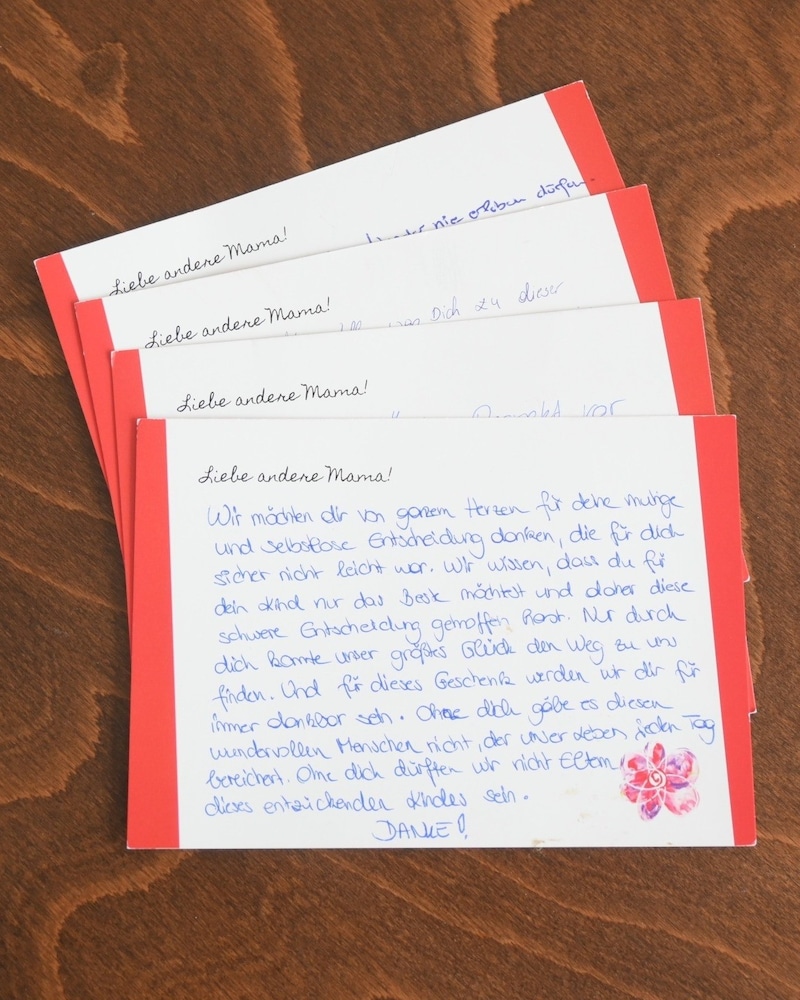 nie erleben dürfen
Liebe andere Mama!
Dich zu dieser
Liebe andere Mama!
vor
Liebe andere Mama!
Liebe andere Mama!
Wir möchten dir von ganzem Herzen für deine mutige
und selbstlose Entscheidung danken, die für dich
sicher nicht leicht war. Wir wissen, dass du für
dein Kind nur das Beste möchtest und daher diese
schwere Entscheidung getroffen hast. Nur durch
dich konnte unser größtes Glück den Weg zu uns
finden. Und für dieses Geschenk werden wir dir für
immer dankbar sein. Ohne dich gäbe es diesen
wundervollen Menschen nicht, der unser Leben jeden Tag
bereichert. Ohne dich dürften wir nicht Eltern
dieses entzückenden Kindes sein.
DANKE!